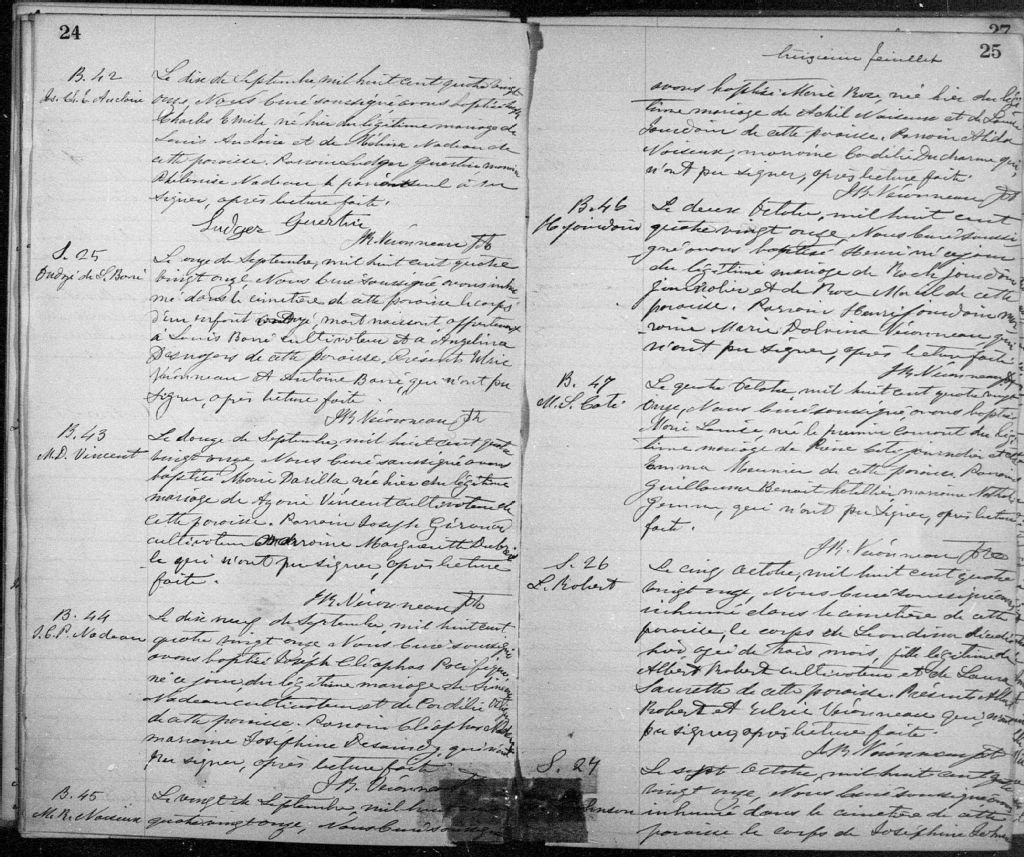 24
B. 42
Js. Ch. E. Auclair
Le dix de Septembre mil huit cent quatre vingt
onze, Nous Curé soussigné avons baptisé Joseph
Charles Emile né hier du légitime mariage de
Louis Auclaire et de Mélina Nadeau de
cette paroisse. Parrain Ludger Guertin, marraine
Philonise Nadeau, le parrain seul a su
signer, après lecture faite.
Ludger Guertin
JB. Véronneau Ptr
S. 25
Ondoyé de L. Barré
Le onze de Septembre, mil huit cent quatre
vingt onze Nous Curé soussigné avons inhu
mé dans le cimetère de cette paroisse le corps
d'un enfant ondoyé, mort naissant, appartenant
à Louis Barré Cultivateur et a Angelina
Desnoyers de cette paroisse. Présents Ulric
Véronneau et Antoine Barré, qui n'ont pu
signer, après lecture faite.
JB. Véronneau Ptr
B. 43
M.D. Vincent
Le douze de Septembre, mil huit cent quatre
vingt onze Nous Curé soussigné avons
baptisé Marie Darilla née hier du légitime
mariage de Azarie Vincent cultivateur de
cette paroisse. Parrain Joseph Girouard
cultivateur marraine Marguerite
le qui n'ont pu signer, après lecture
faite.
JB. Véronneau Ptr
B. 44
J.C.P. Nadeau
Le dix neuf de Septembre, mil huit cent
quatre vingt onze Nous Curé soussigné
avons baptisé Joseph Cléophas Pacifique
né ce jour, du légitime mariage de
Nadeau cultivateur et de Cordélie
de cette paroisse. Parrain Cléophas
marraine Josephine qui n'ont
pu signer, après lecture faite.
J.B. Véronneau
B. 45
M.R. Noiseux
Le vingt de Septembre, mil huit cent
quatre vingt onze, Nous Curé soussigné
27
25
treizième feuillet
avons baptisé Marie Rose, née hier du légi
time mariage de Achil Noiseux et de Louise
Jourdain de cette paroisse. Parrain
Noiseux, marraine Cordélie Ducharme qui
n'ont pu signer, après lecture faite.
JB. Véronneau Ptr
B. 46
H. Jourdain
Le deux Octobre, mil huit cent
quatre vingt onze, Nous Curé soussi
gné avons baptisé Henri né ce jour
du légitime mariage de Roch Jourdain
journalier et de Rose de cette
paroisse. Parrain Henri Jourdain mar
raine Marie Dalvina Véronneau qui
n'ont pu signer, après lecture faite
JB. Véronneau Ptr
B. 47
M.L. Coté
Le quatre Octobre, mil huit cent quatre vingt
onze, Nous Curé soussigné, avons baptisé
Marie née le premier courant du légi
time mariage de Coté journalier et de
Emma Meunier de cette paroisse Parrain
Guillaume Benoit hotellier marraine
qui n'ont pu signer, après lecture
faite.
JB. Véronneau Ptr
S. 26
L. Robert
Le cinq Octobre, mil huit cent quatre
vingt onze, Nous Curé soussigné avons
inhumé dans le cimetère de cette
paroisse, le corps de décédé
agé de trois mois, fille légitime de
Albert Robert cultivateur et de Laura
de cette paroisse. Présents Albert
Robert et Ulric Véronneau qui n'ont
pu signer, après lecture faite.
JB. Véronneau Ptr
S. 27
Le sept Octobre, mil huit cent quatre
vingt onze, Nous Curé soussigné avons
inhumé dans le cimetère de cette
paroisse le corps de Josephine